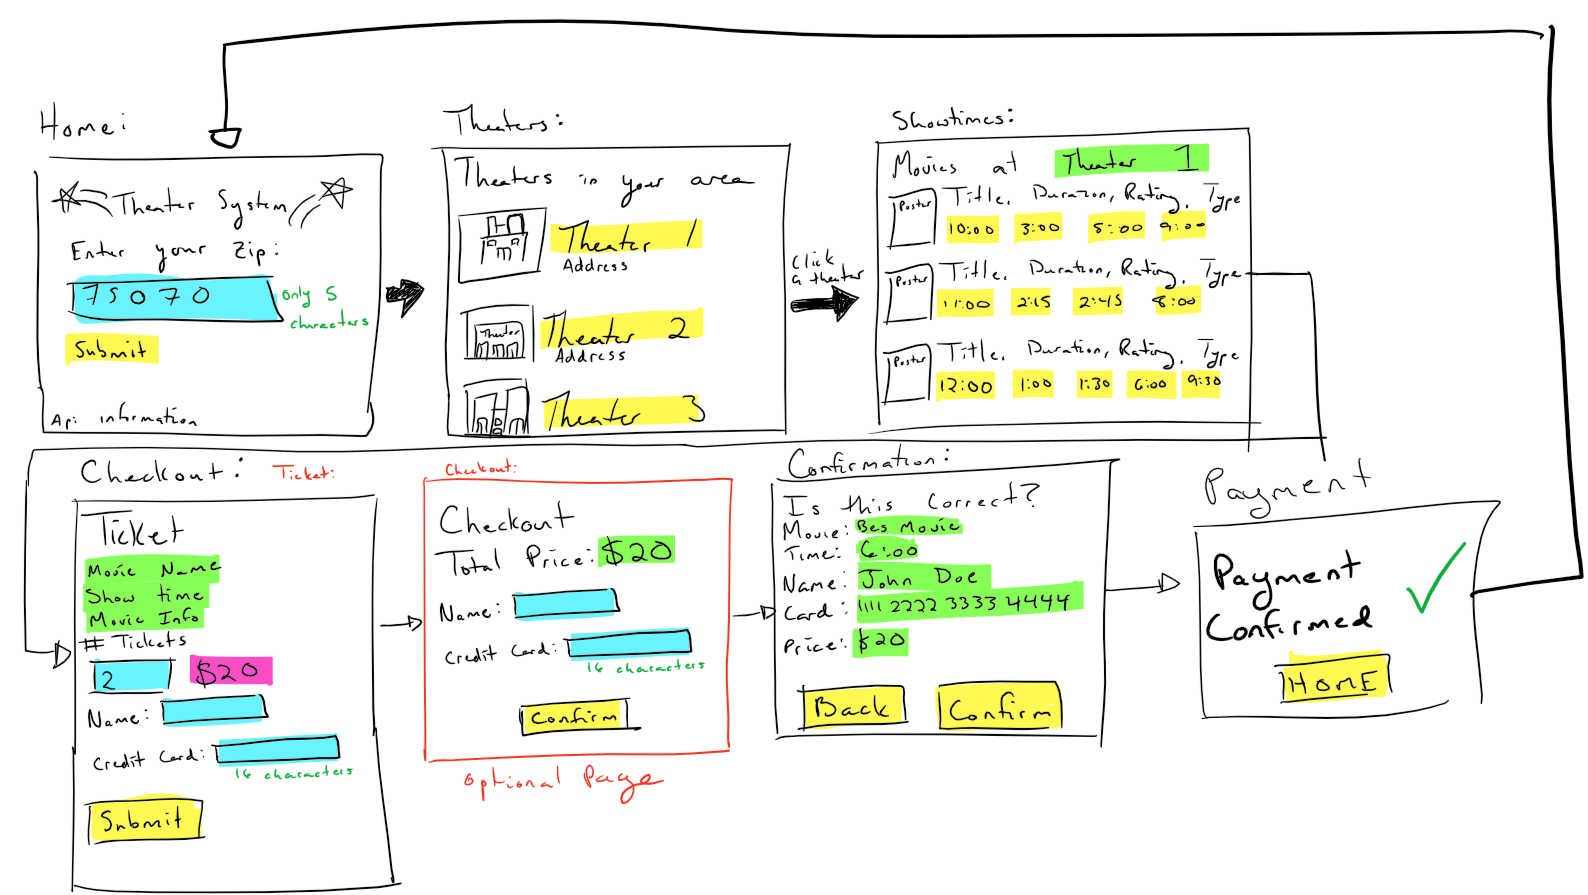 Home:
Theater System
Enter your Zip:
75070
only 5
characters
Submit
Api information
Theaters:
Theaters in your area
Theater 1
Address
Theater
Theater 2
Address
Theater 3
Click
a theater
Showtimes:
Movies at Theater 1
Poster
Title, Duration, Rating, Type
10:00 3:00 5:00 9:00
Poster
Title, Duration, Rating, Type
11:00 2:15 2:45 8:00
Poster
Title, Duration, Rating, Type
12:00 1:00 1:30 6:00 9:30
Checkout: Ticket:
Ticket
Movie Name
Show time
Movie Info
# Tickets
2 $20
Name:
Credit Card:
16 characters
Submit
Checkout:
Checkout
Total Price: $20
Name:
Credit Card:
16 characters
Confirm
Optional Page
Confirmation:
Is this correct?
Movie: Bes Movie
Time: 6:00
Name: John Doe
Card: 1111 2222 3333 4444
Price: $20
Back Confirm
Payment
Payment
Confirmed
HOME